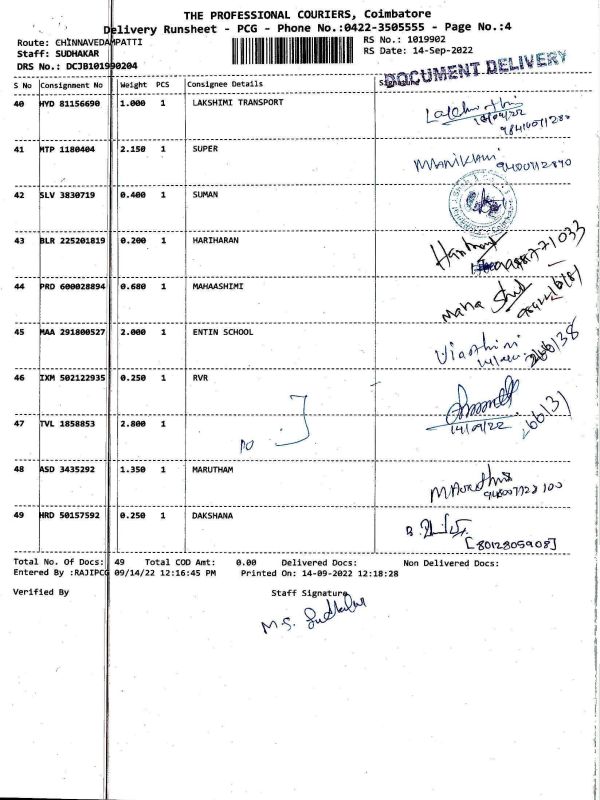 THE PROFESSIONAL COURIERS, Coimbatore
Delivery Runsheet - PCG - Phone No.:0422-3505555 - Page No.:4
Route: CHINNAVEDAMPATTI RS No.: 1019902
Staff: SUDHAKAR RS Date: 14-Sep-2022
DRS No.: DCJB101990204
DOCUMENT DELIVERY
S No Consignment No Weight PCS Consignee Details Signature
40 HYD 81156690 1.000 1 LAKSHIMI TRANSPORT
41 MTP 1180404 2.150 1 SUPER
MANIKAN
42 SLV 3830719 0.400 1 SUMAN
43 BLR 225201819 0.200 1 HARIHARAN
44 PRD 600028894 0.680 1 MAHAASHIMI
Maha
45 MAA 291800527 2.000 1 ENTIN SCHOOL
46 IXM 502122935 0.250 1 RVR
14/09/22
47 TVL 1858853 2.800 1
48 ASD 3435292 1.350 1 MARUTHAM
49 HRD 50157592 0.250 1 DAKSHANA
[8012805908]
Total No. Of Docs: 49 Total COD Amt: 0.00 Delivered Docs: Non Delivered Docs:
Entered By :RAJIPCG 09/14/22 12:16:45 PM Printed On: 14-09-2022 12:18:28
Verified By Staff Signature
M.S. Sudhakar